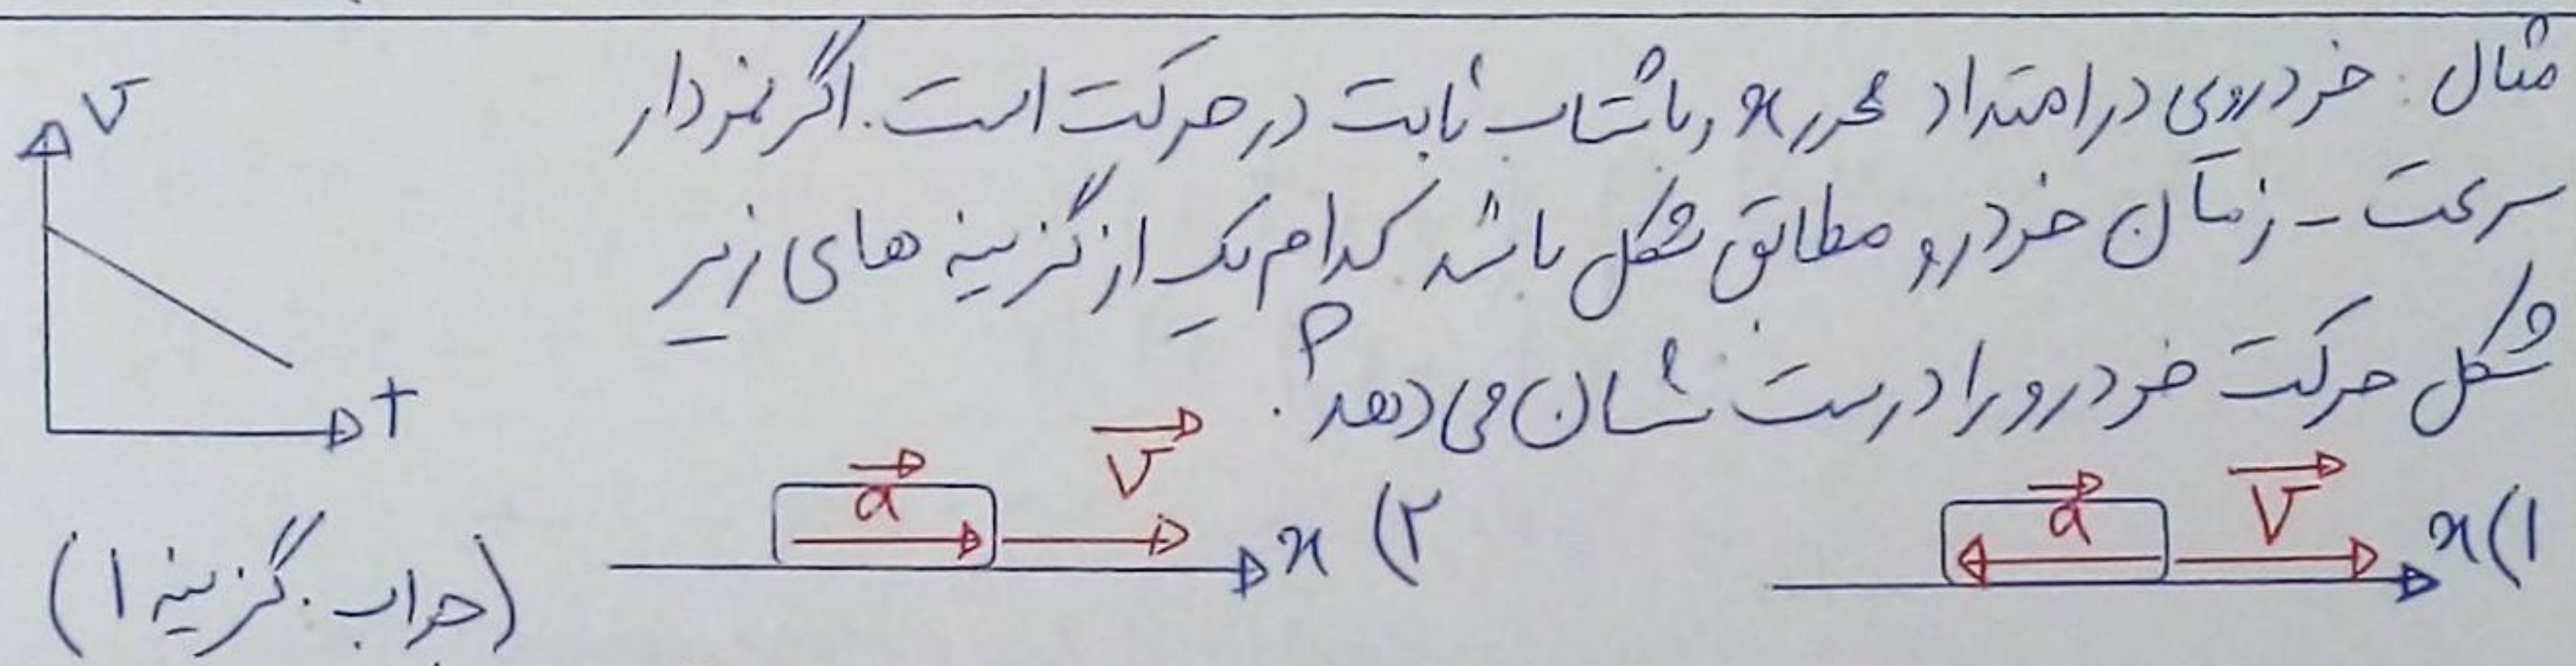 مثال: خودروی در امتداد محور x و با شتاب ثابت در حرکت است. اگر نمودار
سرعت - زمان خودرو مطابق شکل باشد کدام یک از گزینه های زیر
شکل حرکت خودرو را درست نشان می دهد؟
V
t
۱) x
a
V
۲) x
a
V
(جواب: گزینه ۱)